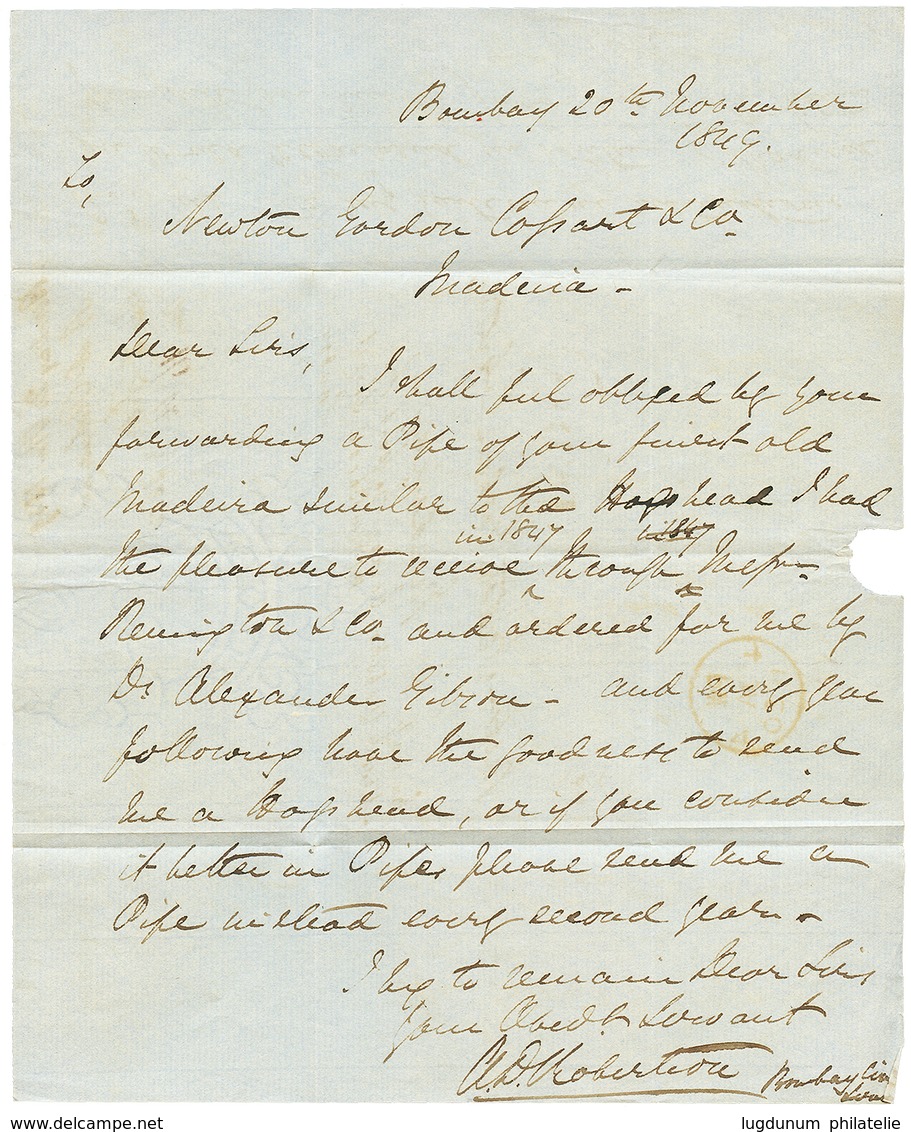 Bombay 20th November
1849.
To,
Newton Gordon Cossart & Co
Madeira -
Dear Sirs,
I shall feel obliged by your
forwarding a Pipe of your finest old
Madeira similar to the Hogshead I had
in 1847 in 1847
the pleasure to receive through Messrs
Remington & Co and ordered for me by
Dr Alexander Gibson - and every year
following have the goodness to send
me a Hogshead, or if you consider
it better in Pipes please send me a
Pipe instead every second year -
I beg to remain Dear Sirs
Your Obedt Servant
A.D. Robertson Bombay Civil
lugdunum philatelie